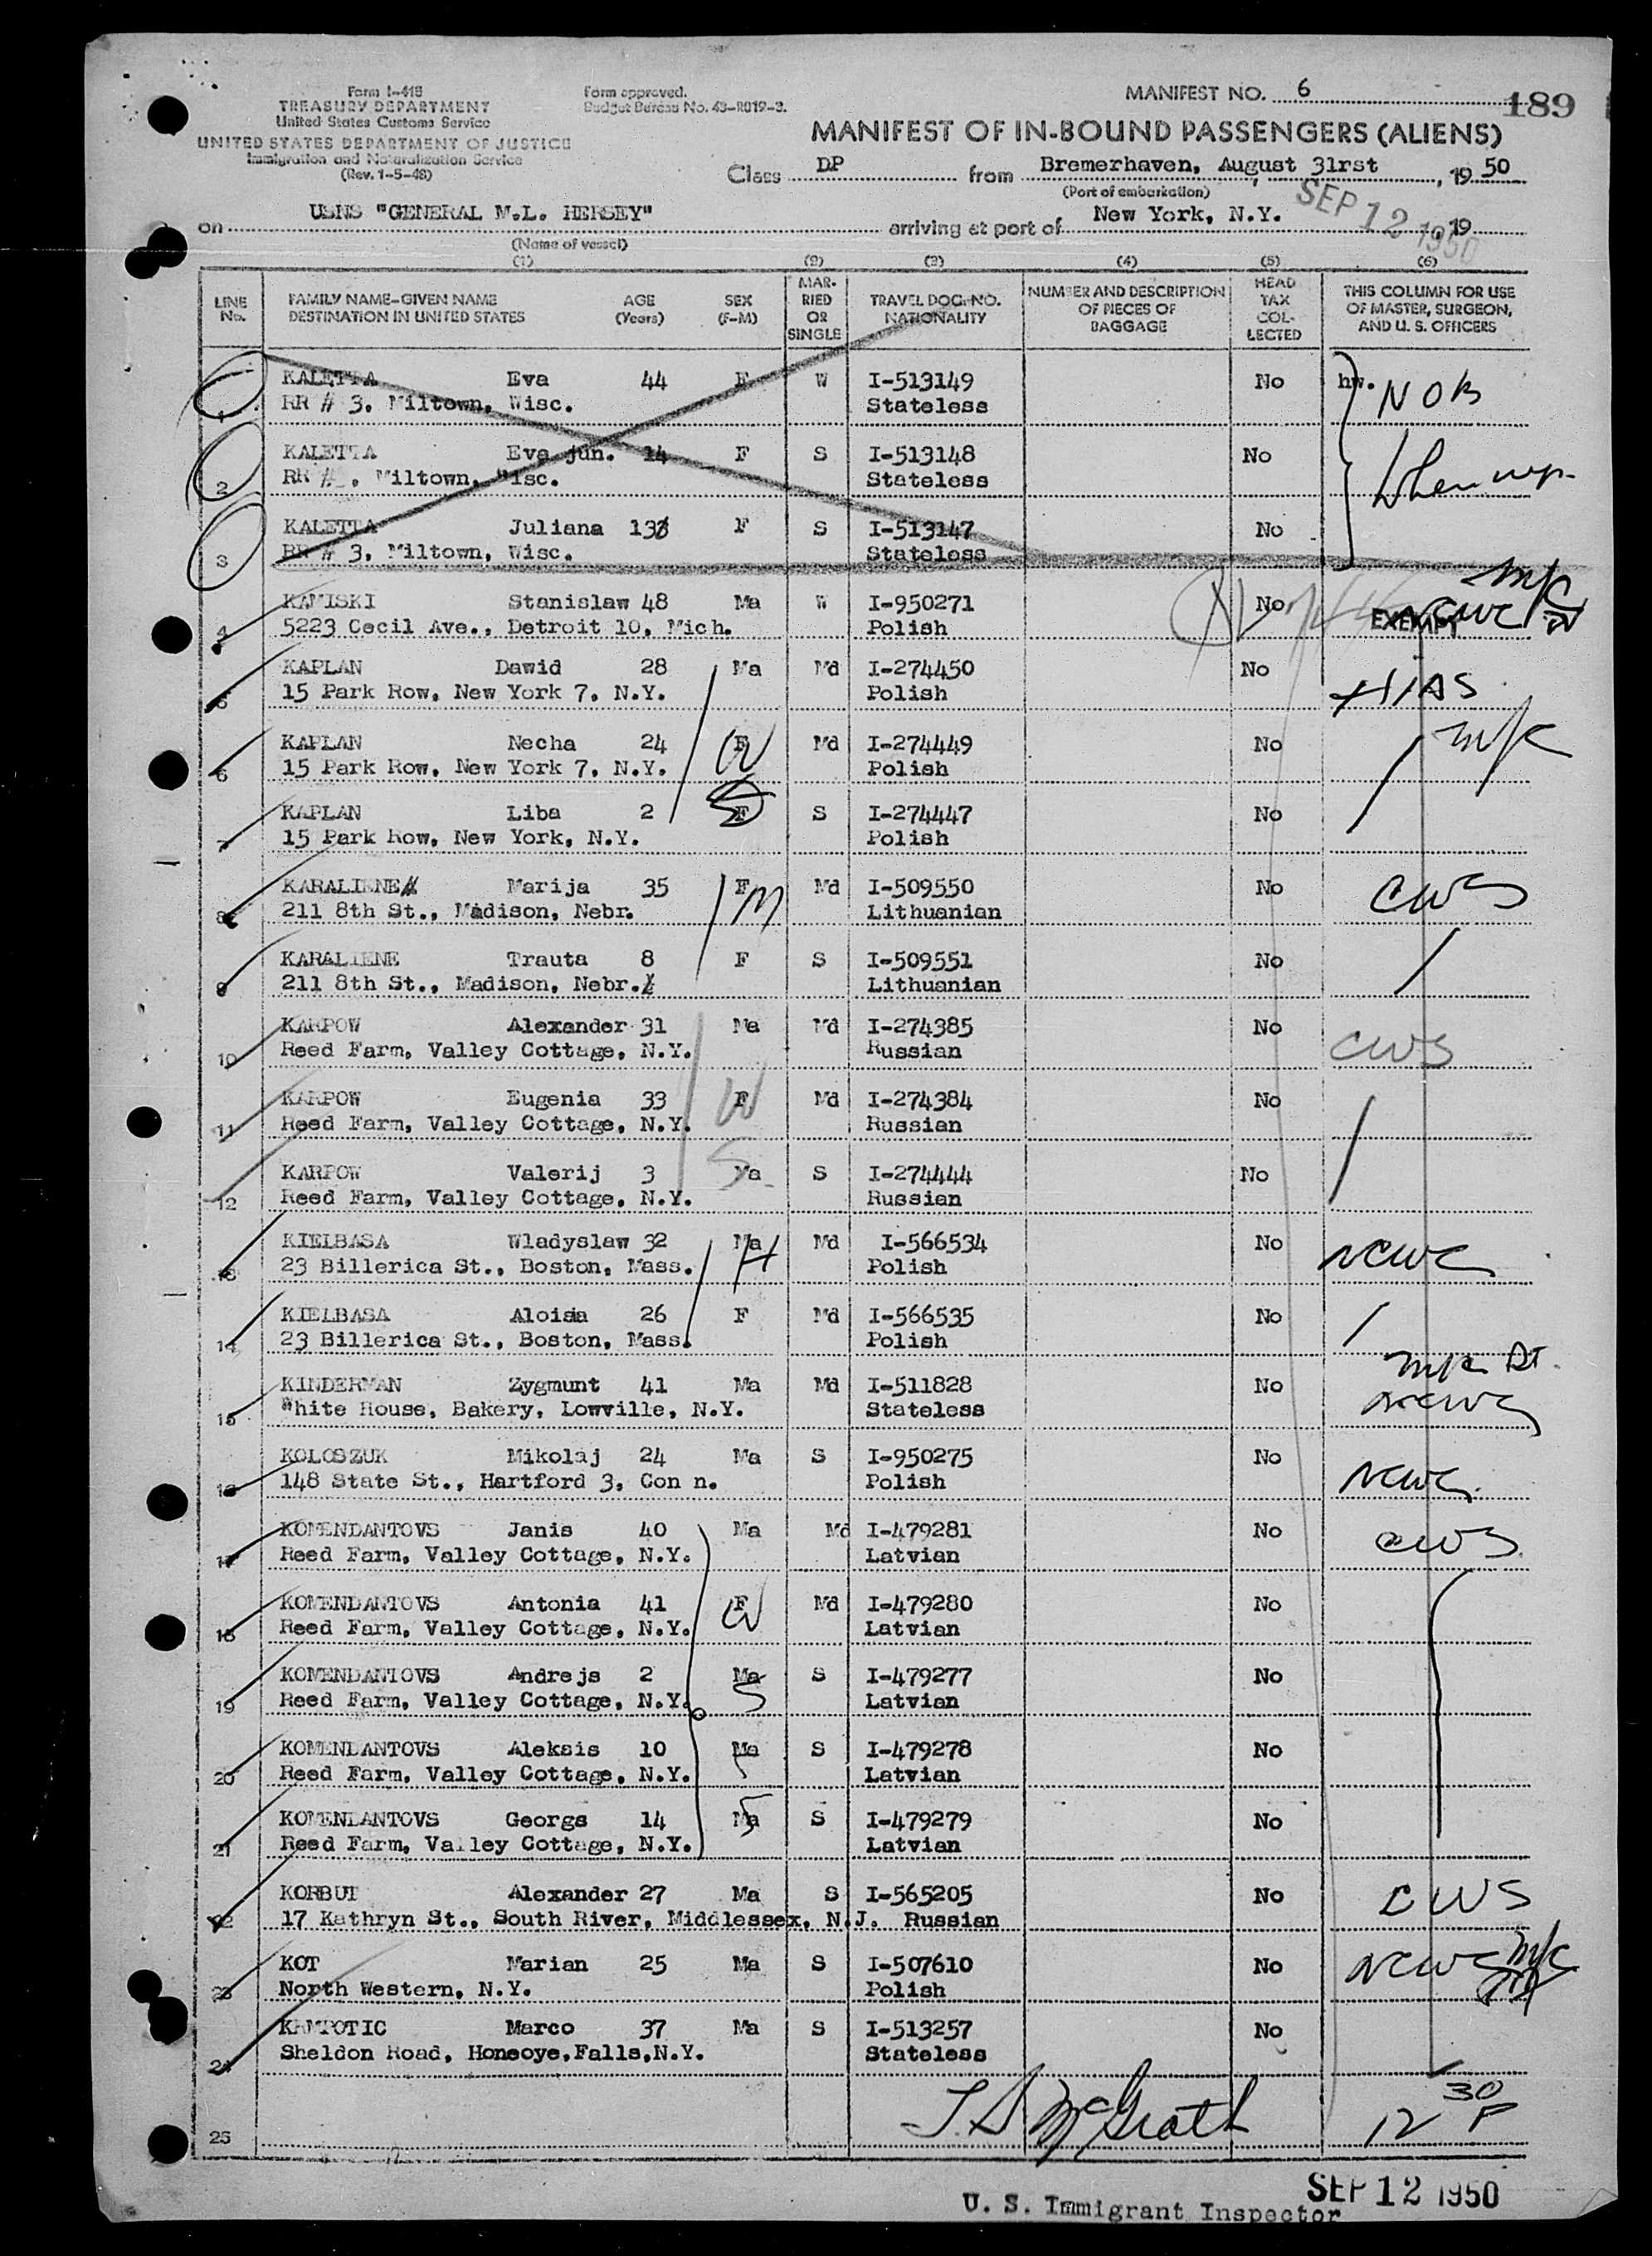 Form I-415
TREASURY DEPARTMENT
United States Customs Service
UNITED STATES DEPARTMENT OF JUSTICE
Immigration and Naturalization Service
(Rev. 1-5-48)
Form approved.
Budget Bureau No. 43-R019-3.
MANIFEST NO. 6
189
MANIFEST OF IN-BOUND PASSENGERS (ALIENS)
Class DP from Bremerhaven, August 31rst, 19 50
(Port of embarkation)
on USNS "GENERAL M.L. HERSEY" arriving at port of New York, N.Y. , 19
SEP 12 1950
(Name of vessel)
(1) (2) (3) (4) (5) (6)
LINE No. FAMILY NAME-GIVEN NAME DESTINATION IN UNITED STATES AGE (Years) SEX (F-M) MARRIED OR SINGLE TRAVEL DOC. NO. NATIONALITY NUMBER AND DESCRIPTION OF PIECES OF BAGGAGE HEAD TAX COLLECTED THIS COLUMN FOR USE OF MASTER, SURGEON, AND U. S. OFFICERS
1 KALETTA Eva 44 F W I-513149 No hw. NOB
RR # 3. Miltown, Wisc. Stateless
2 KALETTA Eva jun. 14 F S I-513148 No
RR # . Miltown, Wisc. Stateless
3 KALETTA Juliana 13 F S I-513147 No
RR # 3, Miltown, Wisc. Stateless
4 KAMISKI Stanislaw 48 Ma W I-950271 No EXEMPT NCWC
5223 Cecil Ave., Detroit 10, Mich. Polish
5 KAPLAN Dawid 28 Ma Md I-274450 No HIAS
15 Park Row, New York 7, N.Y. Polish
6 KAPLAN Necha 24 F W Md I-274449 No
15 Park Row, New York 7, N.Y. Polish
7 KAPLAN Liba 2 F S S I-274447 No
15 Park Row, New York, N.Y. Polish
8 KARALIENE Marija 35 F M Md I-509550 No CWS
211 8th St., Madison, Nebr. Lithuanian
9 KARALIENE Trauta 8 F S I-509551 No
211 8th St., Madison, Nebr. Lithuanian
10 KARPOW Alexander 31 Ma Md I-274385 No CWS
Reed Farm, Valley Cottage, N.Y. Russian
11 KARPOW Eugenia 33 F W Md I-274384 No
Reed Farm, Valley Cottage, N.Y. Russian
12 KARPOW Valerij 3 Ma S S I-274444 No
Reed Farm, Valley Cottage, N.Y. Russian
13 KIELBASA Wladyslaw 32 Ma H Md I-566534 No NCWC
23 Billerica St., Boston, Mass. Polish
14 KIELBASA Aloisia 26 F Md I-566535 No
23 Billerica St., Boston, Mass. Polish
15 KINDERMAN Zygmunt 41 Ma Md I-511828 No NCWC
White House, Bakery, Lowville, N.Y. Stateless
16 KOLOSZUK Mikolaj 24 Ma S I-950275 No NCWC
148 State St., Hartford 3, Con n. Polish
17 KOMENDANTOVS Janis 40 Ma Md I-479281 No CWS
Reed Farm, Valley Cottage, N.Y. Latvian
18 KOMENDANTOVS Antonia 41 F W Md I-479280 No
Reed Farm, Valley Cottage, N.Y. Latvian
19 KOMENDANTOVS Andrejs 2 Ma S S I-479277 No
Reed Farm, Valley Cottage, N.Y. Latvian
20 KOMENDANTOVS Aleksis 10 Ma S I-479278 No
Reed Farm, Valley Cottage, N.Y. Latvian
21 KOMENDANTOVS Georgs 14 Ma S S I-479279 No
Reed Farm, Valley Cottage, N.Y. Latvian
22 KORBUT Alexander 27 Ma S I-565205 No CWS
17 Kathryn St., South River, Middlessex, N.J. Russian
23 KOT Marian 25 Ma S I-507610 No NCWC
North Western, N.Y. Polish
24 KRMPOTIC Marco 37 Ma S I-513257 No
Sheldon Road, Honeoye,Falls,N.Y. Stateless
25 J.S McGrath 12 30 P
SEP 12 1950
U. S. Immigrant Inspector